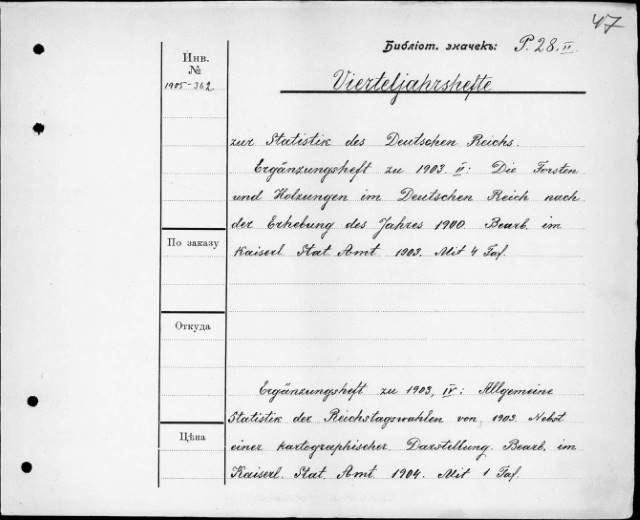 47
Библіот. значекъ: P. 28. II.
Инв.
№
1905-362
Vierteljahrshefte
zur Statistik des Deutschen Reichs.
Ergänzungsheft zu 1903. II: Die Forsten
und Holzungen im Deutschen Reich nach
der Erhebung des Jahres 1900. Bearb. im
По заказу
Kaiserl. Stat. Amt. 1903. Mit 4 Taf.
Откуда
Ergänzungsheft zu 1903, IV: Allgemeine
Statistik der Reichstagswahlen von 1903. Nebst
Цѣна
einer kartographischer Darstellung. Bearb. im
Kaiserl. Stat. Amt. 1904. Mit 1 Taf.